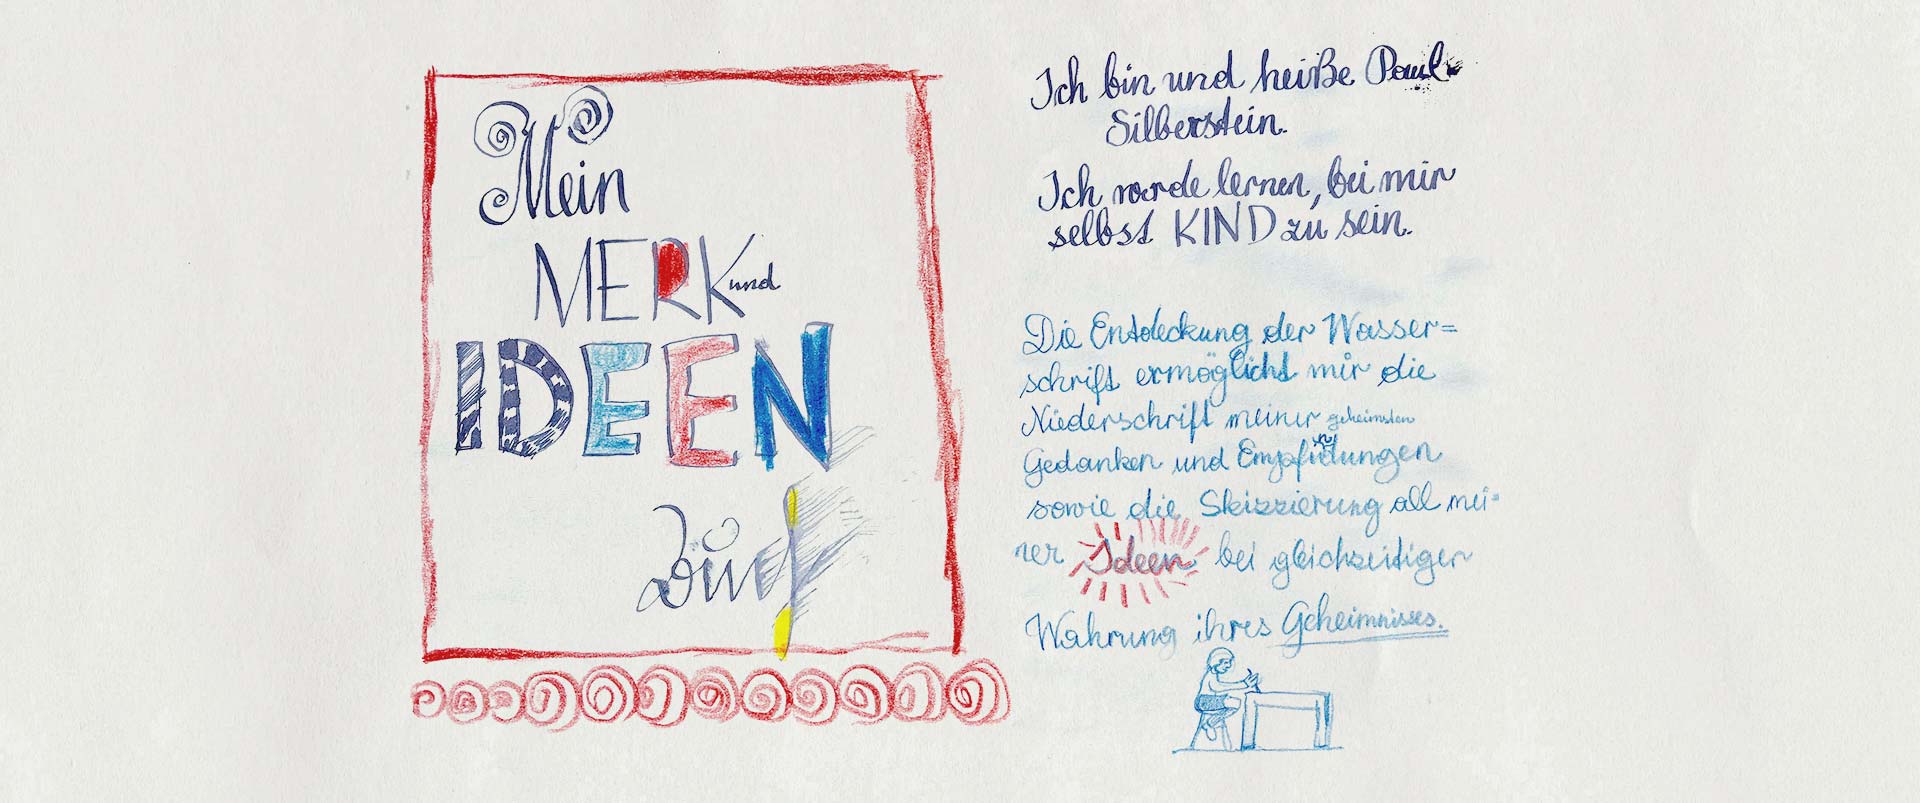 Mein
MERK und
IDEEN
Ich bin und heiße Paul
Silberstein.
Ich werde lernen, bei mir
selbst KIND zu sein.
Die Entdeckung der Wasser=
schrift ermöglicht mir die
Niederschrift meiner geheimsten
Gedanken und Empfindungen
sowie die Skizzierung all mei-
ner Ideen bei gleichzeitiger
Wahrung ihres Geheimnisses.